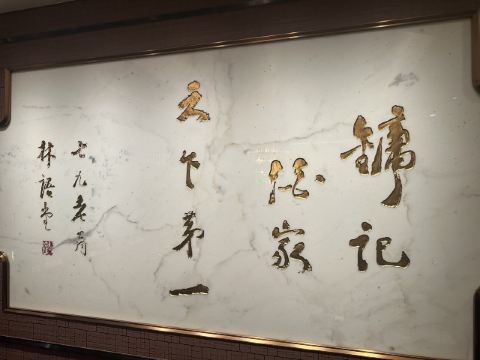 鏞記
酒家
天下第一
七九老翁
林語堂